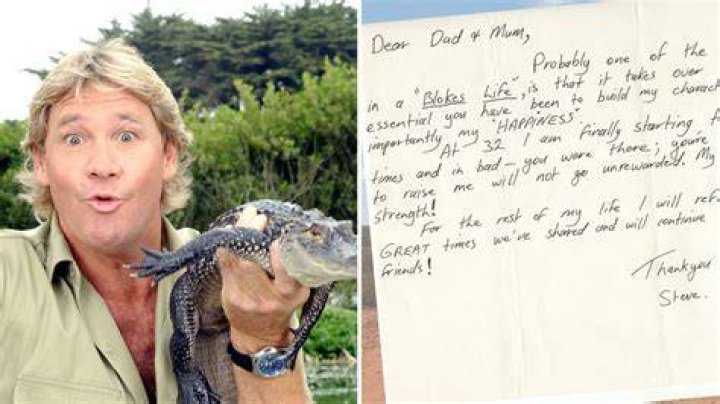 Dear Dad & Mum,
Probably one of the
in a "Blokes Life", is that it takes over
essential you have been to build my charact
importantly my "HAPPINESS".
At 32 I am finally starting t
times and in bad – you were there; you're
to raise me will not go unrewarded. My
strength!
For the rest of my life I will ref
GREAT times we've shared and will continue
friends!
Thankyou
Steve.